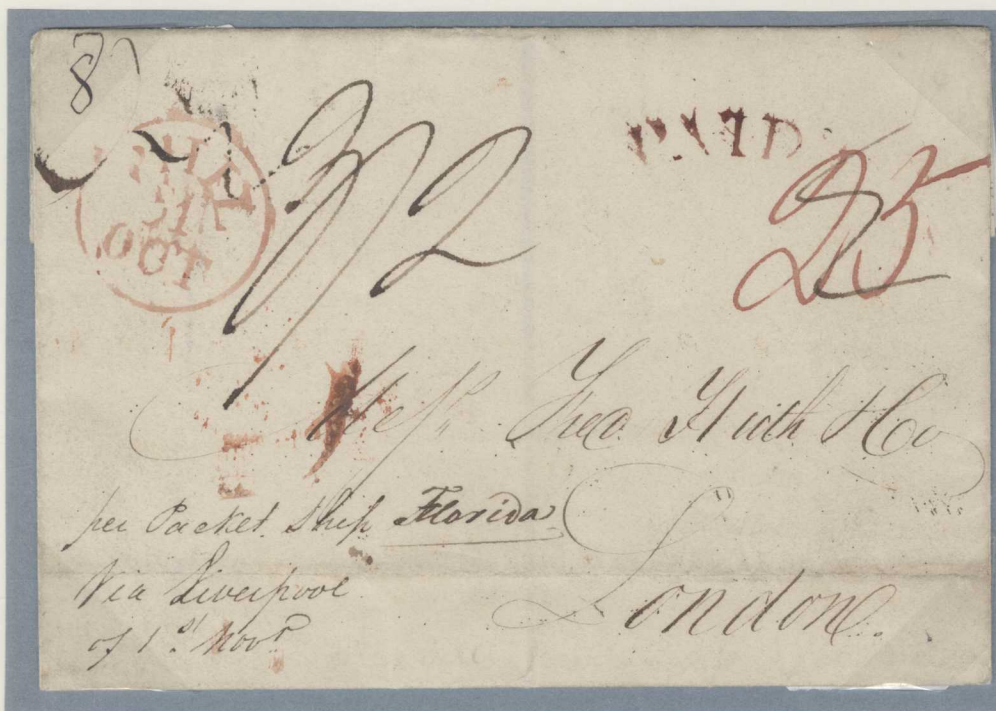 8
PAID
PHILA
31
OCT
2/2
25
2
Messrs Fred Huth & Co
per Packet Ship Florida
Via Liverpool
of 1st Novr
London